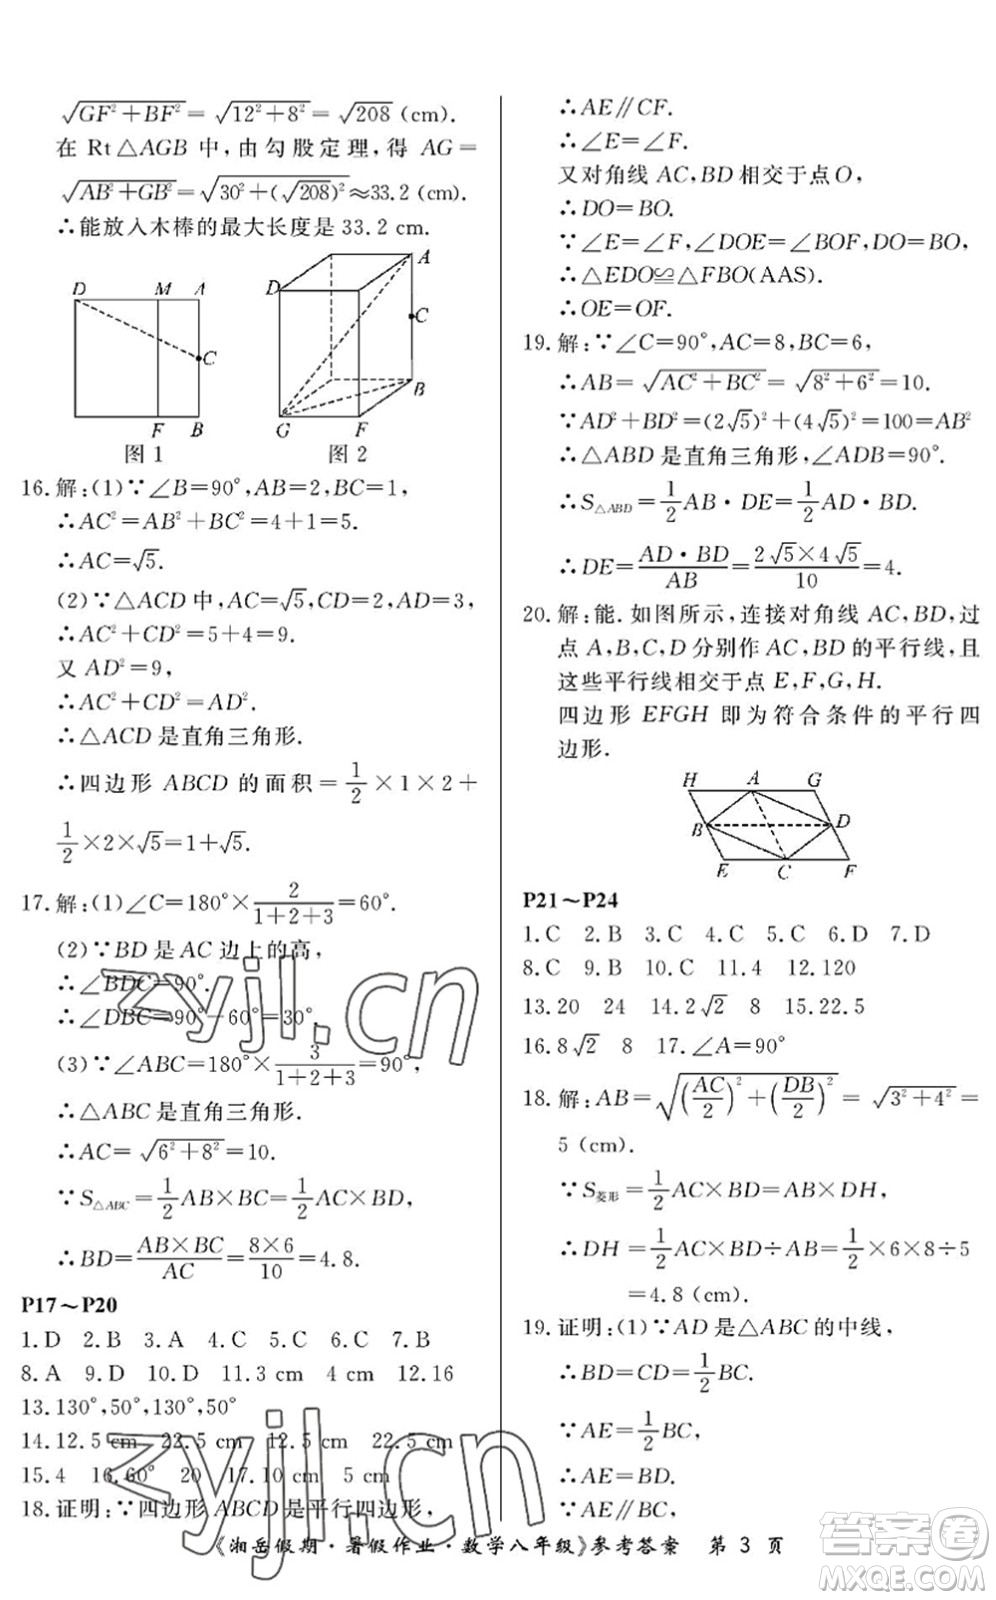 √(GF²+BF²)=√(12²+8²)=√208 (cm).
在 Rt△AGB 中,由勾股定理,得 AG=
√(AB²+GB²)=√(30²+(√208)²)≈33.2 (cm).
∴能放入木棒的最大长度是 33.2 cm.
D M A
C
F B
图 1
A
D
C
B
G F
图 2
16.解:(1)∵∠B=90°,AB=2,BC=1,
∴AC²=AB²+BC²=4+1=5.
∴AC=√5.
(2)∵△ACD 中,AC=√5,CD=2,AD=3,
∴AC²+CD²=5+4=9.
又 AD²=9,
∴AC²+CD²=AD².
∴△ACD 是直角三角形.
∴四边形 ABCD 的面积=1/2×1×2+
1/2×2×√5=1+√5.
17.解:(1)∠C=180°×2/(1+2+3)=60°.
(2)∵BD 是 AC 边上的高,
∴∠BDC=90°.
∴∠DBC=90°-60°=30°.
(3)∵∠ABC=180°×3/(1+2+3)=90°,
∴△ABC 是直角三角形.
∴AC=√(6²+8²)=10.
∵S△ABC=1/2AB×BC=1/2AC×BD,
∴BD=(AB×BC)/AC=(8×6)/10=4.8.
P17～P20
1.D 2.B 3.A 4.C 5.C 6.C 7.B
8.A 9.D 10.D 11.3 cm 12.16
13.130°,50°,130°,50°
14.12.5 cm 22.5 cm 12.5 cm 22.5 cm
15.4 16.60° 20 17.10 cm 5 cm
18.证明:∵四边形 ABCD 是平行四边形,
∴AE∥CF.
∴∠E=∠F.
又对角线 AC,BD 相交于点 O,
∴DO=BO.
∵∠E=∠F,∠DOE=∠BOF,DO=BO,
∴△EDO≌△FBO(AAS).
∴OE=OF.
19.解:∵∠C=90°,AC=8,BC=6,
∴AB=√(AC²+BC²)=√(8²+6²)=10.
∵AD²+BD²=(2√5)²+(4√5)²=100=AB²
∴△ABD 是直角三角形,∠ADB=90°.
∴S△ABD=1/2AB·DE=1/2AD·BD.
∴DE=(AD·BD)/AB=(2√5×4√5)/10=4.
20.解:能.如图所示,连接对角线 AC,BD,过
点 A,B,C,D 分别作 AC,BD 的平行线,且
这些平行线相交于点 E,F,G,H.
四边形 EFGH 即为符合条件的平行四
边形.
H A G
B D
E C F
P21～P24
1.C 2.B 3.C 4.C 5.C 6.D 7.D
8.C 9.B 10.C 11.4 12.120
13.20 24 14.2√2 8 15.22.5
16.8√2 8 17.∠A=90°
18.解:AB=√((AC/2)²+(DB/2)²)=√(3²+4²)=
5 (cm).
∵S菱形=1/2AC×BD=AB×DH,
∴DH=1/2AC×BD÷AB=1/2×6×8÷5
=4.8 (cm).
19.证明:(1)∵AD 是△ABC 的中线,
∴BD=CD=1/2BC.
∵AE=1/2BC,
∴AE=BD.
∵AE∥BC,
《湘岳假期·暑假作业·数学八年级》参考答案 第 3 页
zyjl.cn
zyjl.cn
答案圈
MXQE.COM